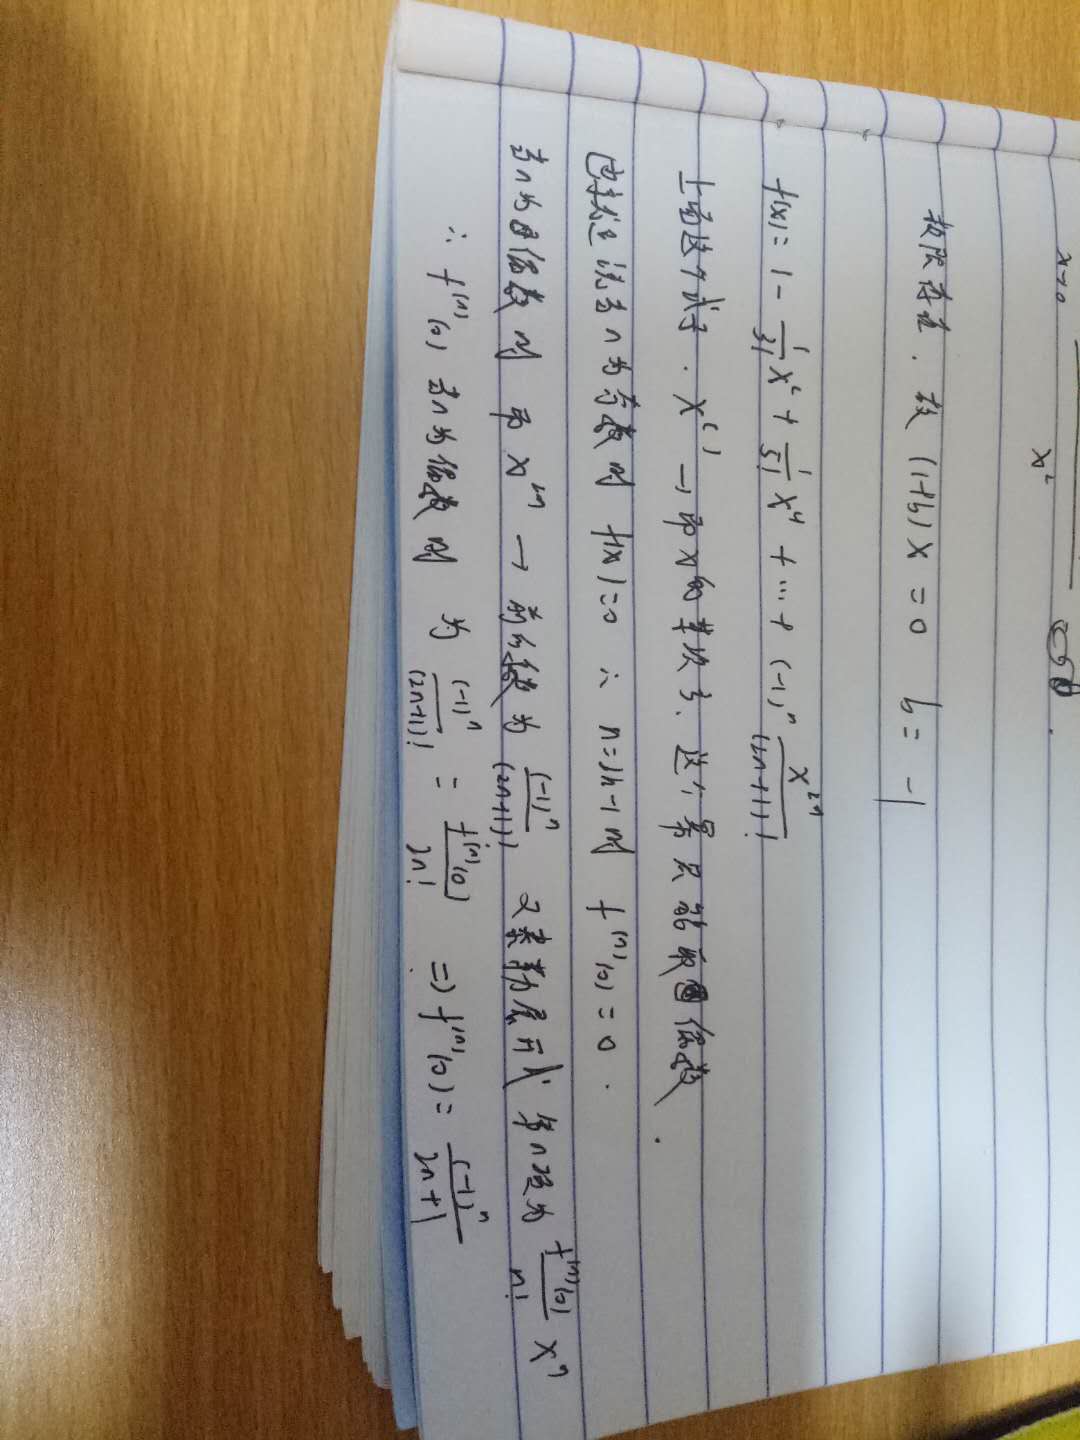 x→0
x²
极限存在. 故 (1+b)x=0 b=-1
f(x)=1-\frac{1}{3!}x²+\frac{1}{5!}x⁴+⋯+(-1)ⁿ\frac{x^{2n}}{(2n+1)!}
上面这个式子. x^{( )} → 即x的某次方. 这个幂只能取偶数.
也就是说当n为奇数时 f(x)=0 ∴ n=2k-1时 f^{(n)}(0)=0.
当n为偶数时 即x^{2n} → 前的系数为\frac{(-1)^n}{(2n+1)!} 又泰勒展开式 第n项为\frac{f^{(n)}(0)}{n!}xⁿ
∴ f^{(n)}(0) 当n为偶数时 为\frac{(-1)^n}{(2n+1)!}=\frac{f^{(n)}(0)}{2n!} ⇒ f^{(n)}(0)=\frac{(-1)^n}{2n+1}